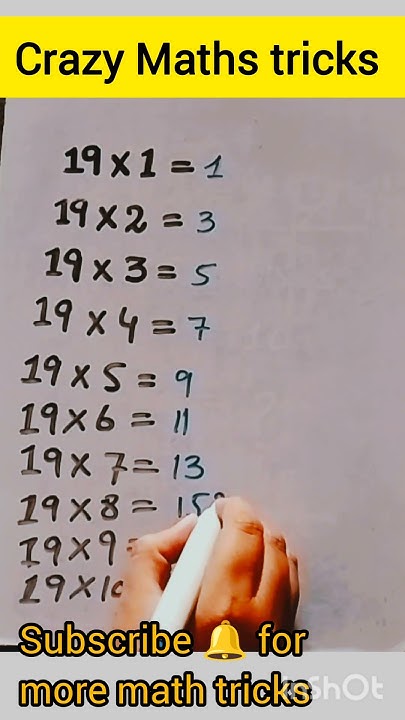 Crazy Maths tricks
19 × 1 = 1
19 × 2 = 3
19 × 3 = 5
19 × 4 = 7
19 × 5 = 9
19 × 6 = 11
19 × 7 = 13
19 × 8 = 15
19 × 9 =
19 × 10
Subscribe 🔔 for
more math tricks
InShOt